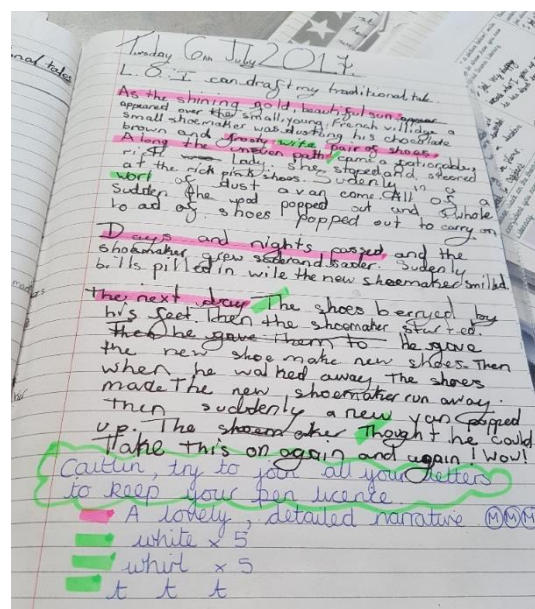 Tuesday 6th July 2017
L.O. I can draft my traditional tale.
As the shining gold, beautiful sun appear
appeared over the small, young, French villidge a
small shoemaker was dusting his chocolate
brown and frosty wite pair of shoes.
Along the uneven path came a
rich Lady. She stoped and steered
at the rick pink shoes. Sudenly in a
worl of dust a van came. All of a
Sudden the upod popped out and a whole
load of shoes popped out to carry on
Days and nights passed and the
shoemaker grew sader and sader. Sudenly
bills pilled in wile the new shoemaker smilled.
The next day The shoes berryed by
his feet. Then the shoemaker started.
then he gave them to He gave
the new shoe make new shoes. Then
when he walked away The shoes
made The new shoemaker run away.
Then suddenly a new van popped
up. The shoemaker Thought he could
Take this on again and again! Wow!
Caitlin, try to join all your letters
to keep your pen licence.
A lovely, detailed narrative M M M
white x 5
whirl x 5
t t t